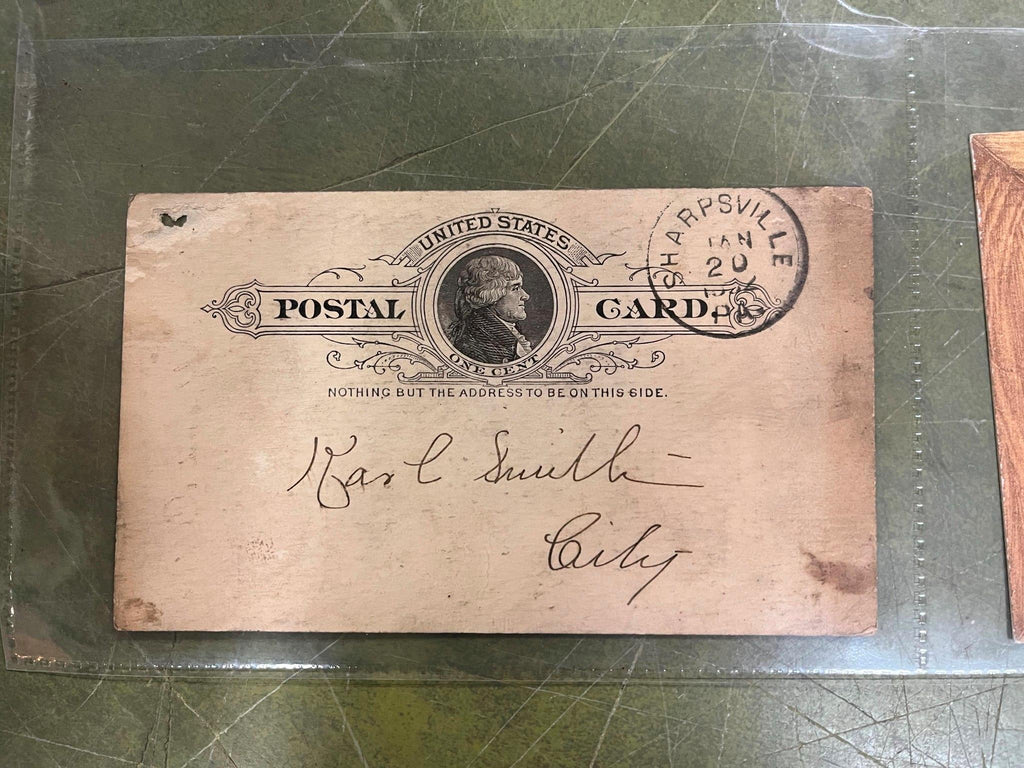 UNITED STATES
POSTAL CARD.
ONE CENT
NOTHING BUT THE ADDRESS TO BE ON THIS SIDE.
SHARPSVILLE
JAN
20
PA.
Karl Smith
City